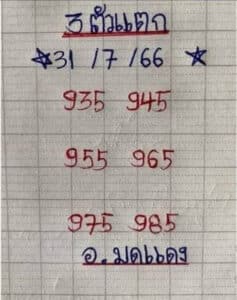 3 ตัวแตก
☆31 /7 /66 ☆
935 945
955 965
975 985
อ.มดแดง